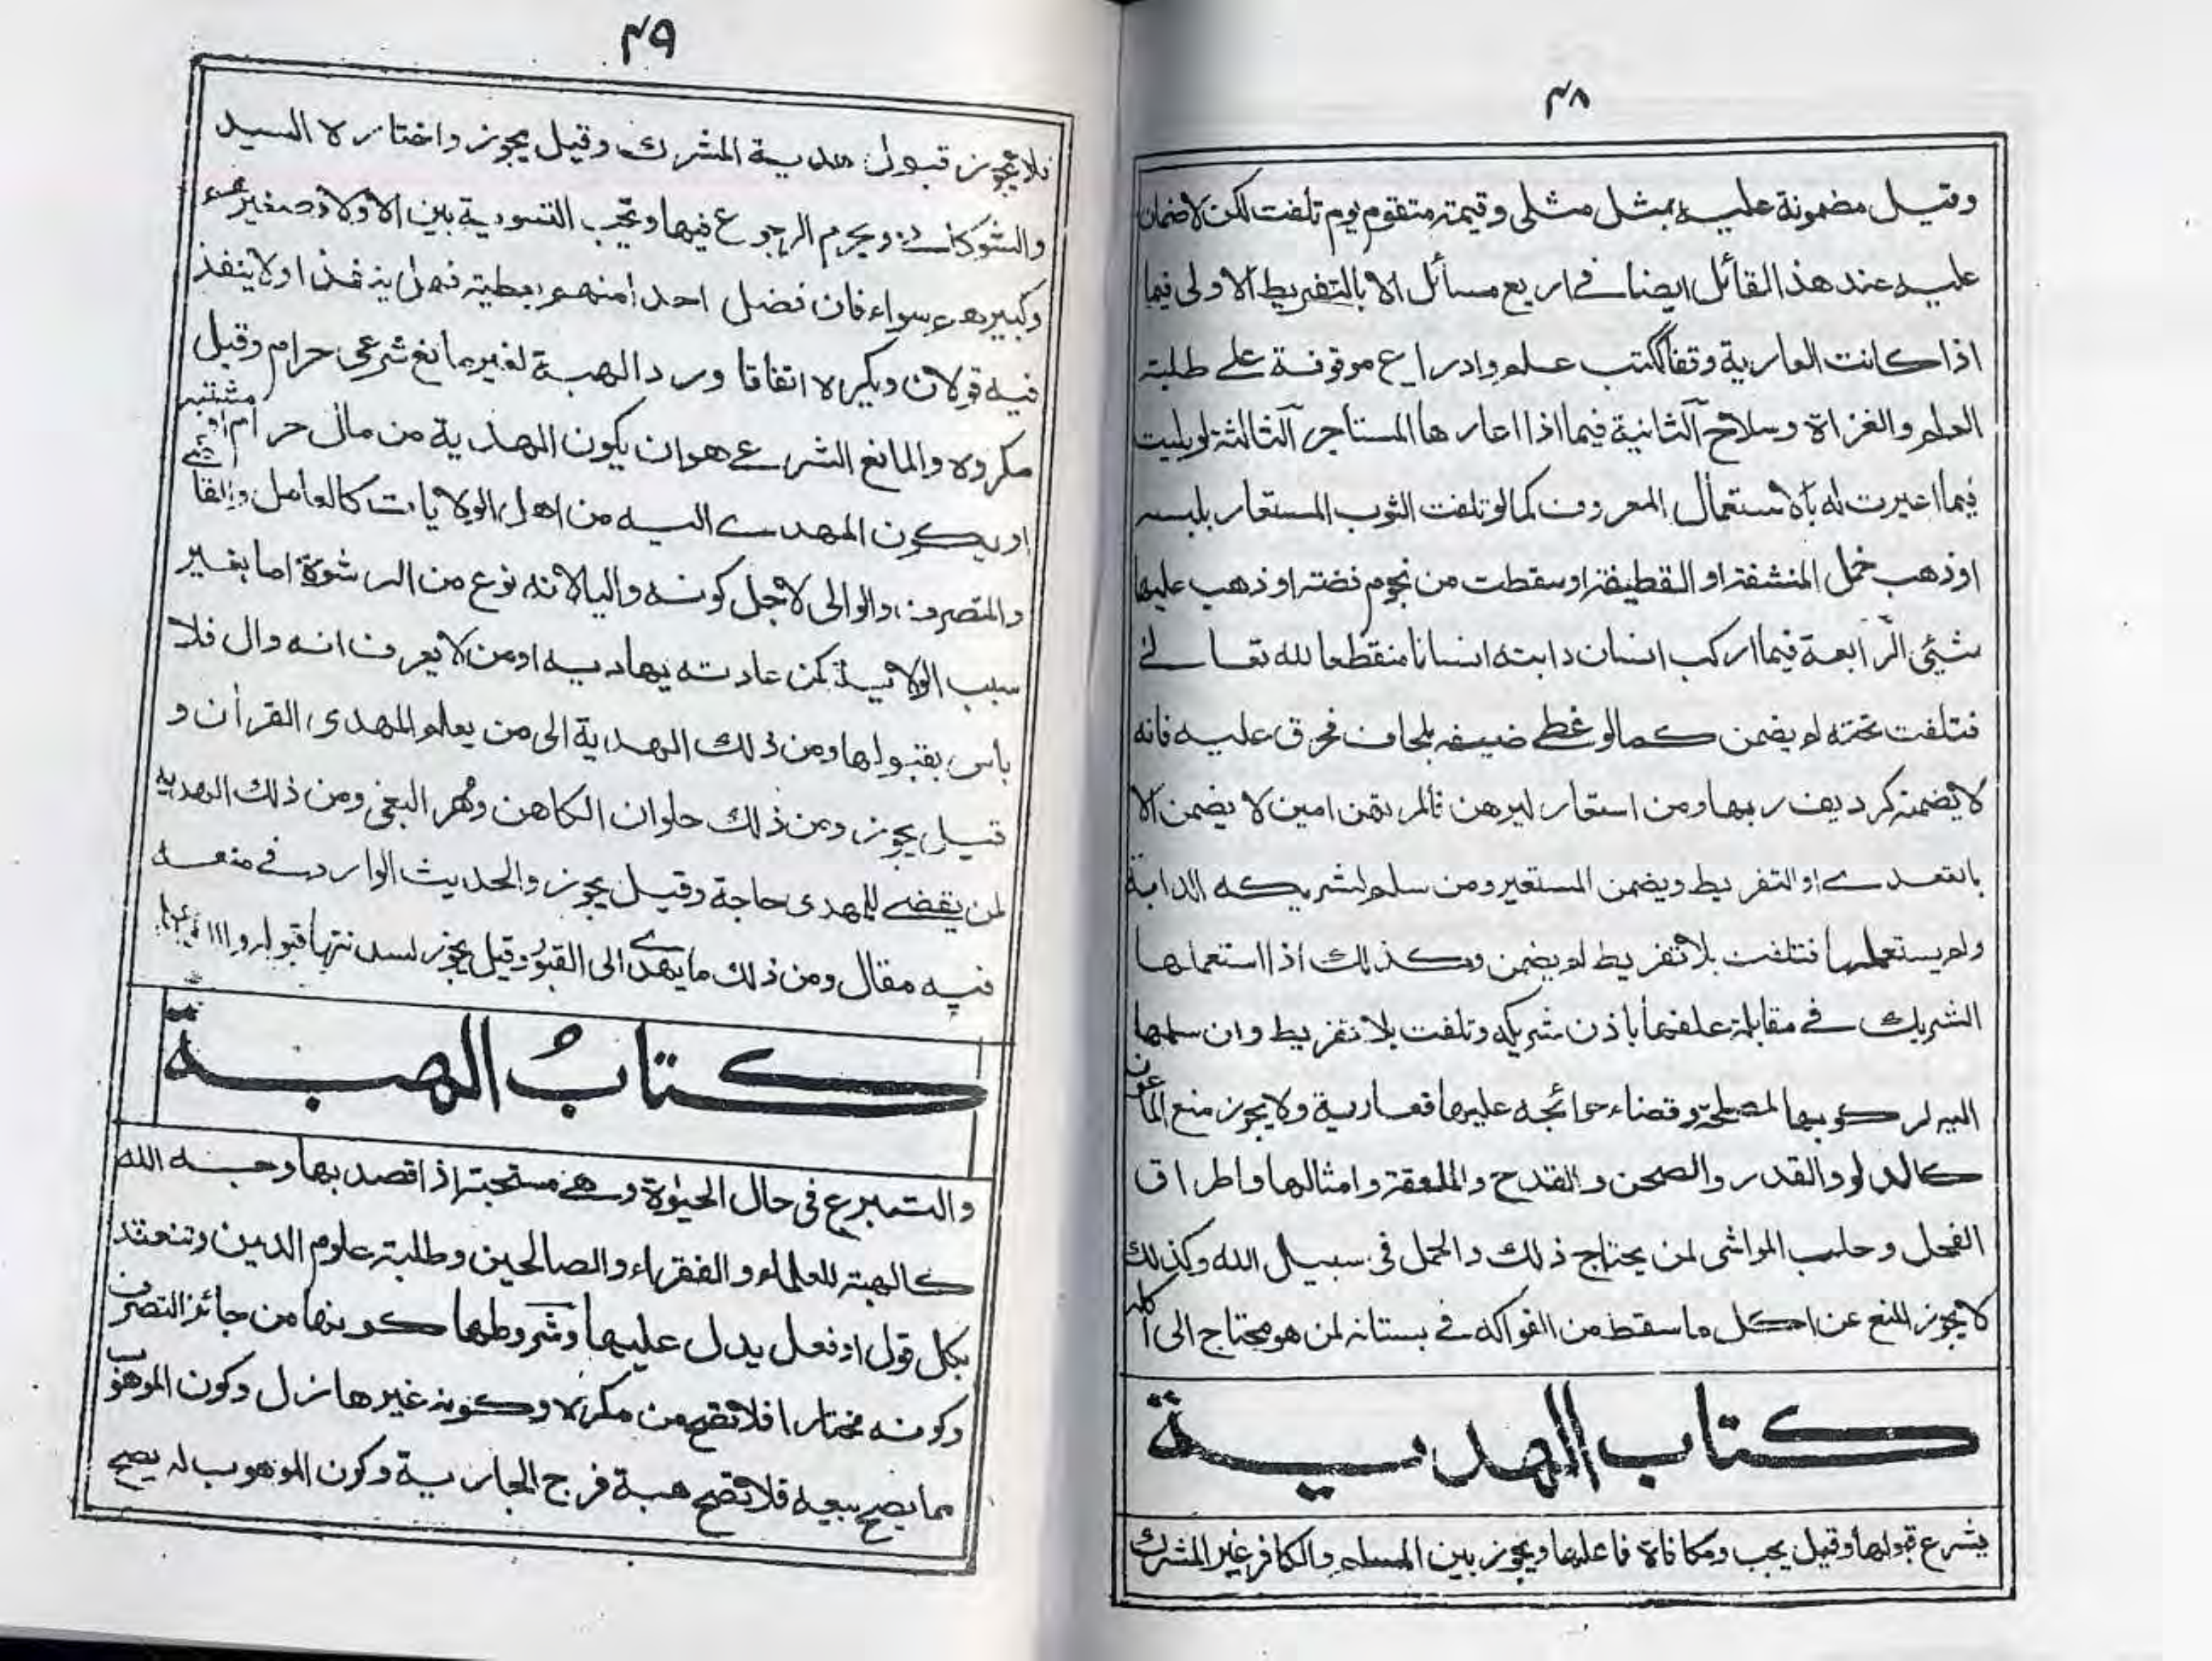 ٤٨
وقيل مضمونة عليه بمثل مثلى وقيمة متقوم يوم تلفت لكن لا ضمان
عليه عند هذا القائل ايضا في اربع مسائل الا بالتفريط الاولى فيما
اذا كانت العارية وقفا ككتب علم وادراع موقوفة على طلبة
العلم والغزاة وسلاح الثانية فيما اذا اعارها المستأجر الثالثة لو بليت
فيما اعيرت له بالاستعمال المعروف كما لو تلفت الثوب المستعار بلبسه
او ذهب خمل المنشفة او القطيفة او سقطت من نجوم فضة او ذهب عليها
شيئى الرابعة فيما اركب انسان دابته انسانا منقطعا لله تعالى
فتلفت تحته لم يضمن كما لو غطى ضيفه بلحاف فحرق عليه فانه
لا يضمنه كرديف ربها ومن استعار ليرهن فالمرتهن امين لا يضمن الا
بالتعدى او التفريط ويضمن المستعير ومن سلم لشريكه الدابة
ولم يستعملها فتلفت بلا تفريط لم يضمن وكذلك اذا استعملها
الشريك في مقابلة علفها باذن شريكه وتلفت بلا تفريط وان سلمها
اليه لركوبها لمصلحة وقضاء حوائجه عليها فعارية ولا يجوز منع الماعون
كالدلو والقدر والصحن والقدح والملعقة وامثالها واطراق
الفحل وحلب المواشى لمن يحتاج ذلك والحمل فى سبيل الله وكذلك
لا يجوز المنع عن اكل ما سقط من الفواكه في بستانه لمن هو محتاج الى اكله
كتاب الهدية
يشرع قبولها وقيل يجب ومكافاة فاعلها ويجوز بين المسلم والكافر غير المشرك
٤٩
فلا يجوز قبول هدية المشرك وقيل يجوز واختاره السيد
والشوكانى ويحرم الرجوع فيها وتجب التسوية بين الاولاد صغيرهم
وكبيرهم سواء فان فضل احدا منهم بعطية فهل ينفذ او لا ينفذ
فيه قولان ويكره اتفاقا ورد الهبة لغير مانع شرعى حرام وقيل
مكروه والمانع الشرعي هو ان يكون الهدية من مال حرام او مشتبه
او يكون المهدى اليه من اهل الولايات كالعامل والقاضى
والمتصرف والوالى لاجل كونه واليا لانه نوع من الرشوة اما بغير
سبب الولاية كمن عادته يهاديه او من لا يعرف انه وال فلا
باس بقبولها ومن ذلك الهدية الى من يعلم المهدى القرآن و
قيل يجوز ومن ذلك حلوان الكاهن ومهر البغى ومن ذلك الهدية
لمن يقضى للمهدى حاجة وقيل يجوز والحديث الوارد في منعه
فيه مقال ومن ذلك ما يهدى الى القبور وقيل يجوز لسدنتها قبوله
كتابُ الهبة
والتبرع فى حال الحيوة وهى مستحبة اذا قصد بها وجه الله
كالهبة للعلماء والفقراء والصالحين وطلبة علوم الدين وتنعقد
بكل قول او فعل يدل عليها وشروطها كونها من جائز التصرف
وكونه مختارا فلا تصح من مكره وكونه غير هازل وكون الموهوب
مما يصح بيعه فلا تصح هبة فرج الجارية وكون الموهوب له يصح